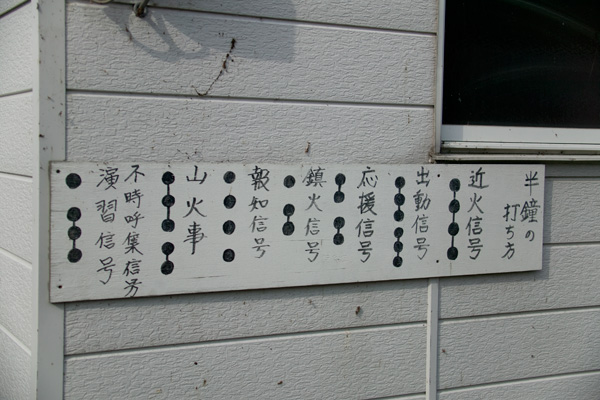 半鐘の
打ち方
近火信号
出動信号
応援信号
鎮火信号
報知信号
山火事
不時呼集信号
演習信号